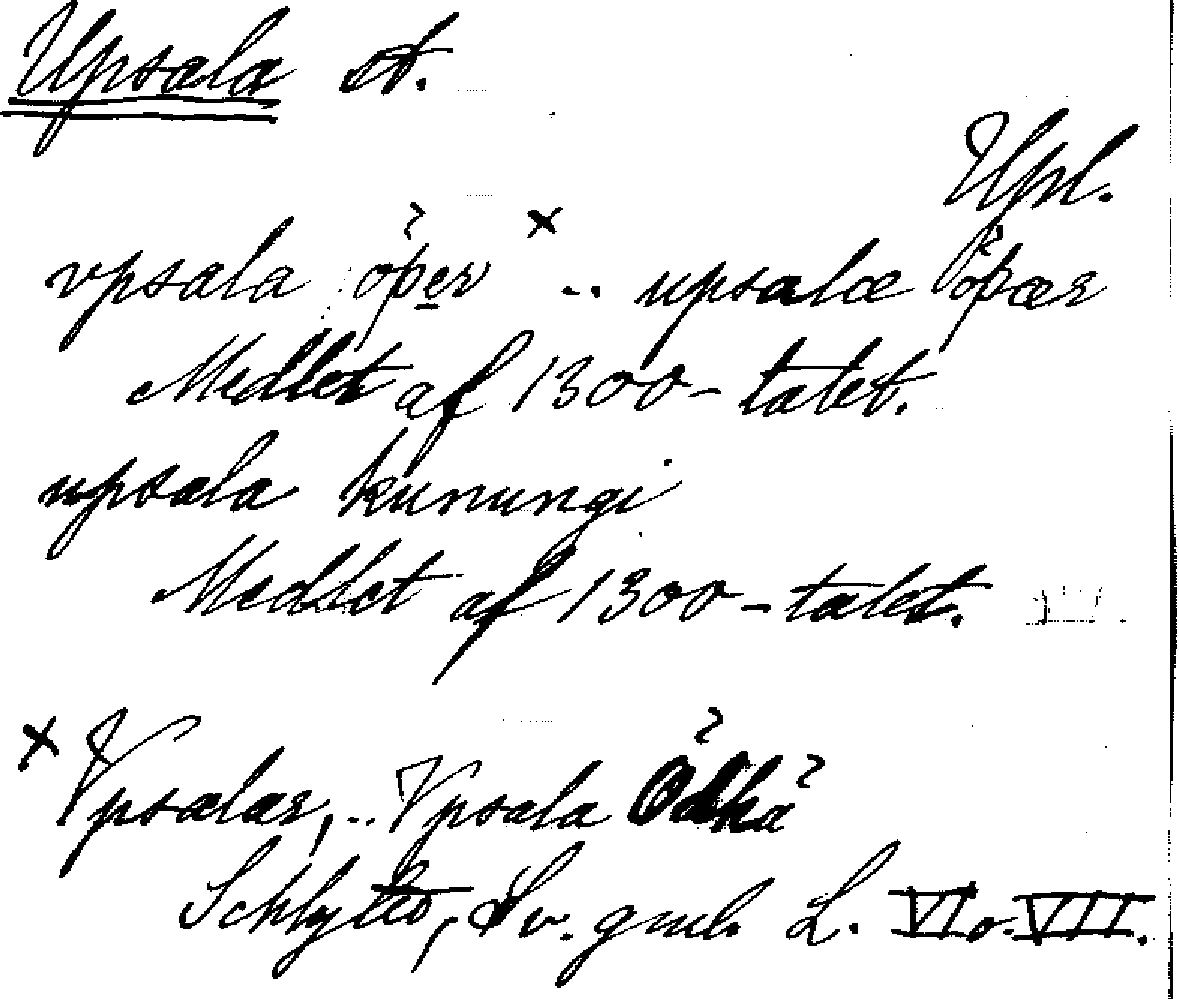 Upsala st.
Upl.
vpsala öþer × .. upsalæ öþær
Medlet af 1300-talet.
upsala kunungi
Medlet af 1300-talet.
× Vpsalar, .. Vpsala
Schlyter, Sv. gml. L. VI o. VII.